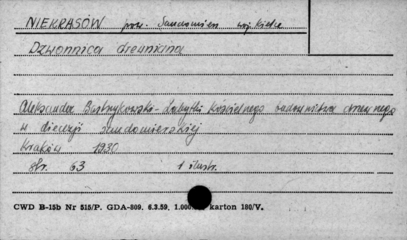 NIEKRASÓW pow. Sandomierz woj. Kielce
Dzwonnica drewniana
Aleksander Bastrzykowski - Zabytki kościelnego budownictwa drewnego
w diecezji sandomierskiej
Kraków 1930
str. 63 1 ilustr.
CWD B-15b Nr 515/P. GDA-809. 6.3.59. 1.000 karton 180/V.